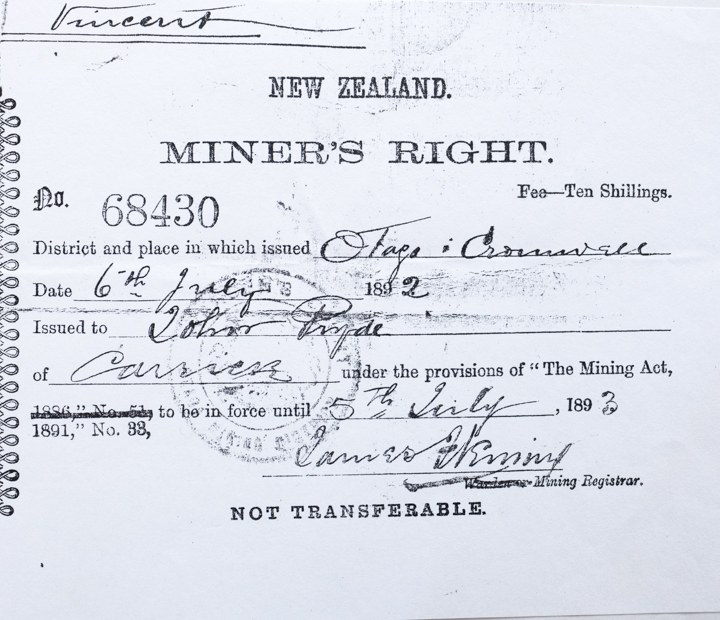 Vincent
NEW ZEALAND.
MINER'S RIGHT.
Fee—Ten Shillings.
No. 68430
District and place in which issued Otago : Cromwell
Date 6th July 1892
Issued to John Pryde
of Carrick under the provisions of "The Mining Act,
1886," No. 51, to be in force until 5th July, 1893
1891," No. 33,
James Fleming
Warden or Mining Registrar.
NOT TRANSFERABLE.